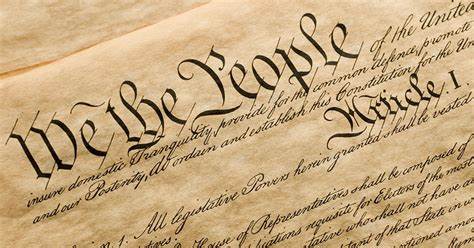 We the People of the United
insure domestic Tranquility, provide for the common defence, promote
and our Posterity, do ordain and establish this Constitution for the United
Article. I.
1. All legislative Powers herein granted shall be vested
House of Representatives shall be composed of
Qualifications requisite for Electors of the
who shall not have
of that State in